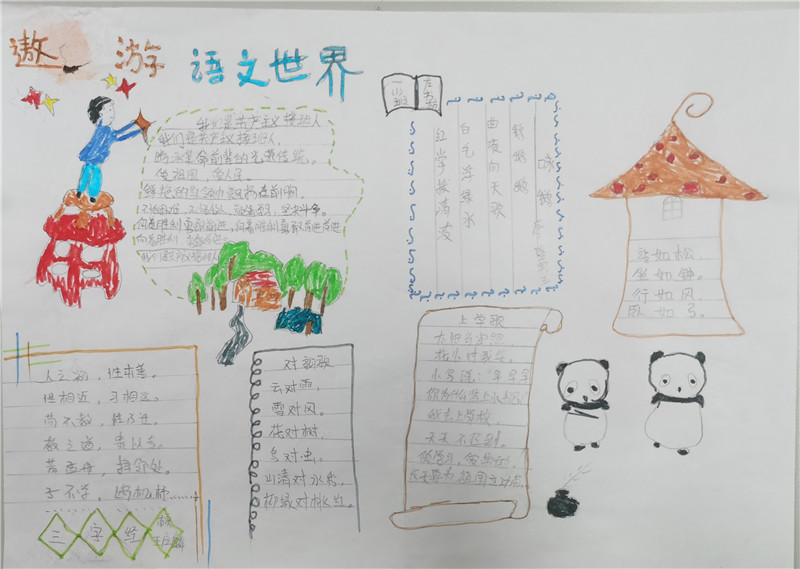 遨游语文世界
我们是共产主义接班人
我们是共产主义接班人,
继承革命前辈的光荣传统,
爱祖国,爱人民,
鲜艳的红领巾飘扬在前胸,
不怕困难,不怕敌人,顽强学习,坚决斗争。
向着胜利勇敢前进,向着胜利勇敢前进前进
向着胜利
我们是共产主义接班人
咏鹅
鹅鹅鹅
曲项向天歌
白毛浮绿水
红掌拨清波
站如松,
坐如钟。
行如风,
卧如弓。
人之初,性本善。
性相近,习相远。
苟不教,性乃迁。
教之道,贵以专。
昔孟母,择邻处。
子不学,断机杼……
三字经
对韵歌
云对雨,
雪对风。
花对树,
鸟对虫。
山清对水秀,
柳绿对桃红。
上学歌
太阳当空照,
花儿对我笑。
小鸟说:“早早早
你为什么背上小书包
我去上学校,
天天不迟到。
爱学习,爱劳动,
长大要为祖国立功劳